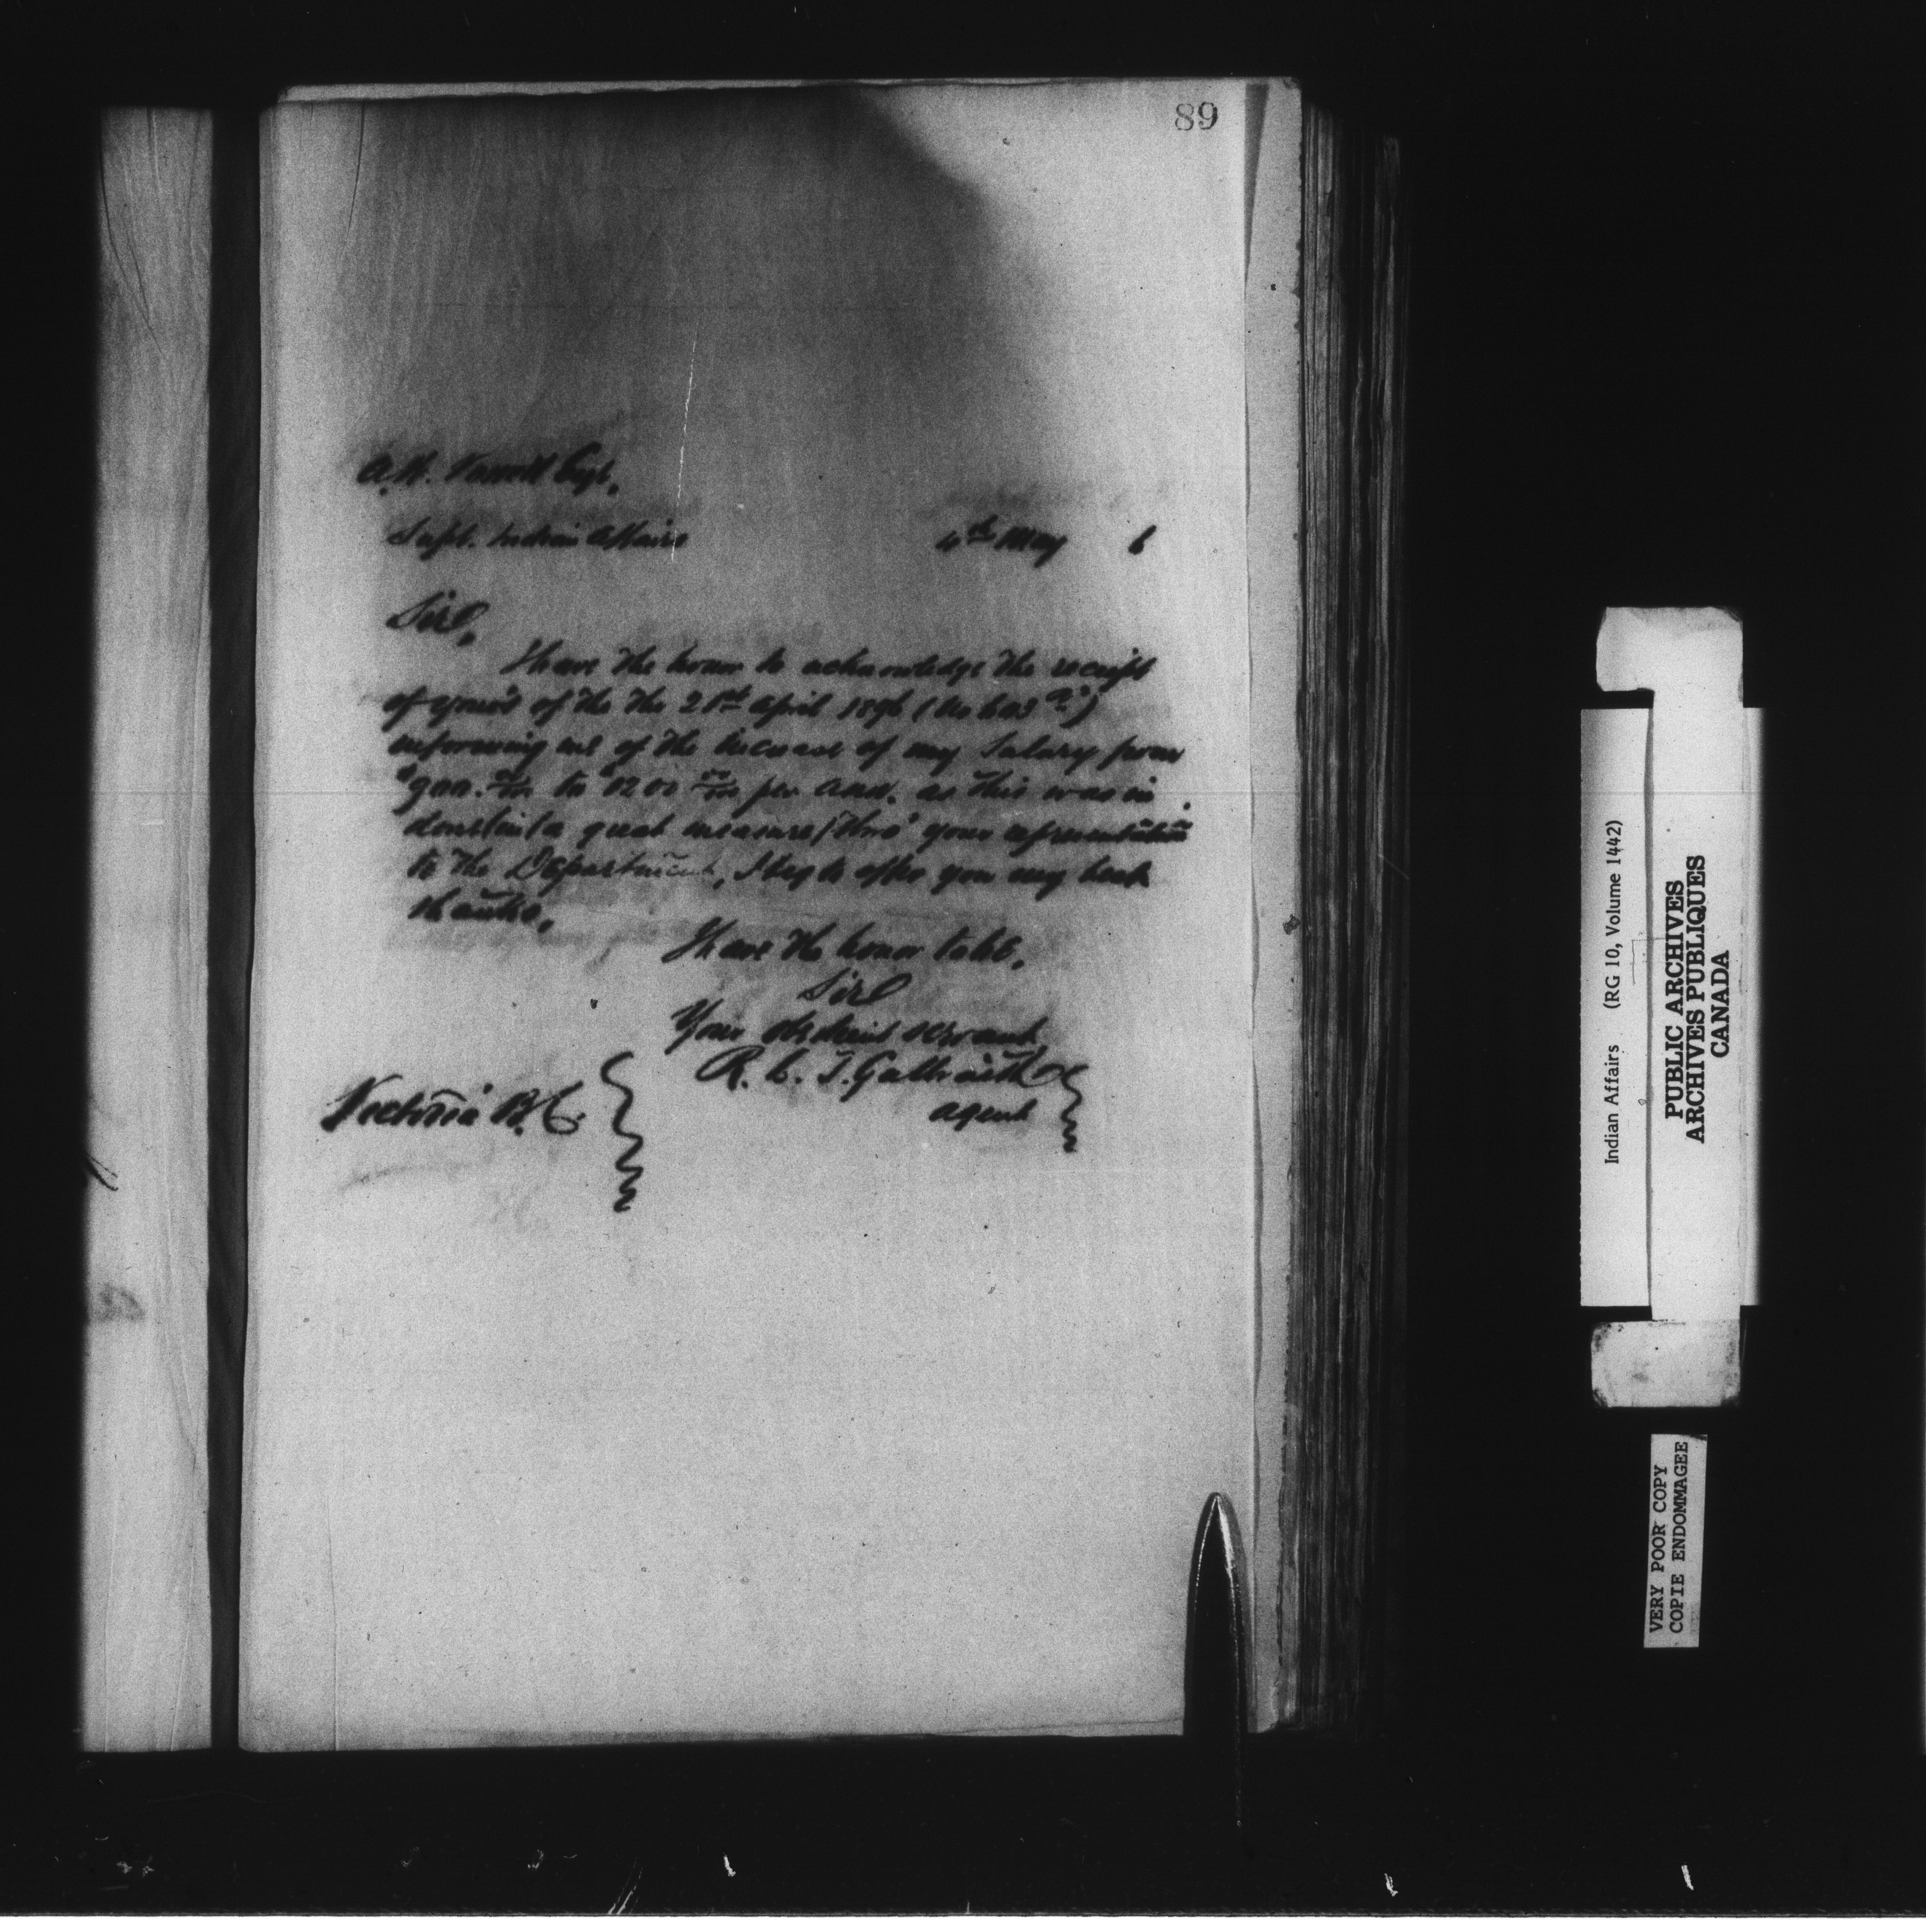 89
A.W. Vowell Esq.,
Supt. Indian Affairs 4th May 6
Sir,
I have the honor to acknowledge the receipt
of yours of the the 21st April 1896
informing me of the increase of my Salary from
$900. 00/100 to $1200 00/100 per ann. as this was in
a great measure thro' your representation
to the Department, I beg to offer you my best
thanks,
I have the honor to be,
Sir
Your obedient servant
R. L. T. Galbraith
Agent
Victoria B.C.
Indian Affairs (RG 10, Volume 1442)
PUBLIC ARCHIVES
ARCHIVES PUBLIQUES
CANADA
VERY POOR COPY
COPIE ENDOMMAGEE